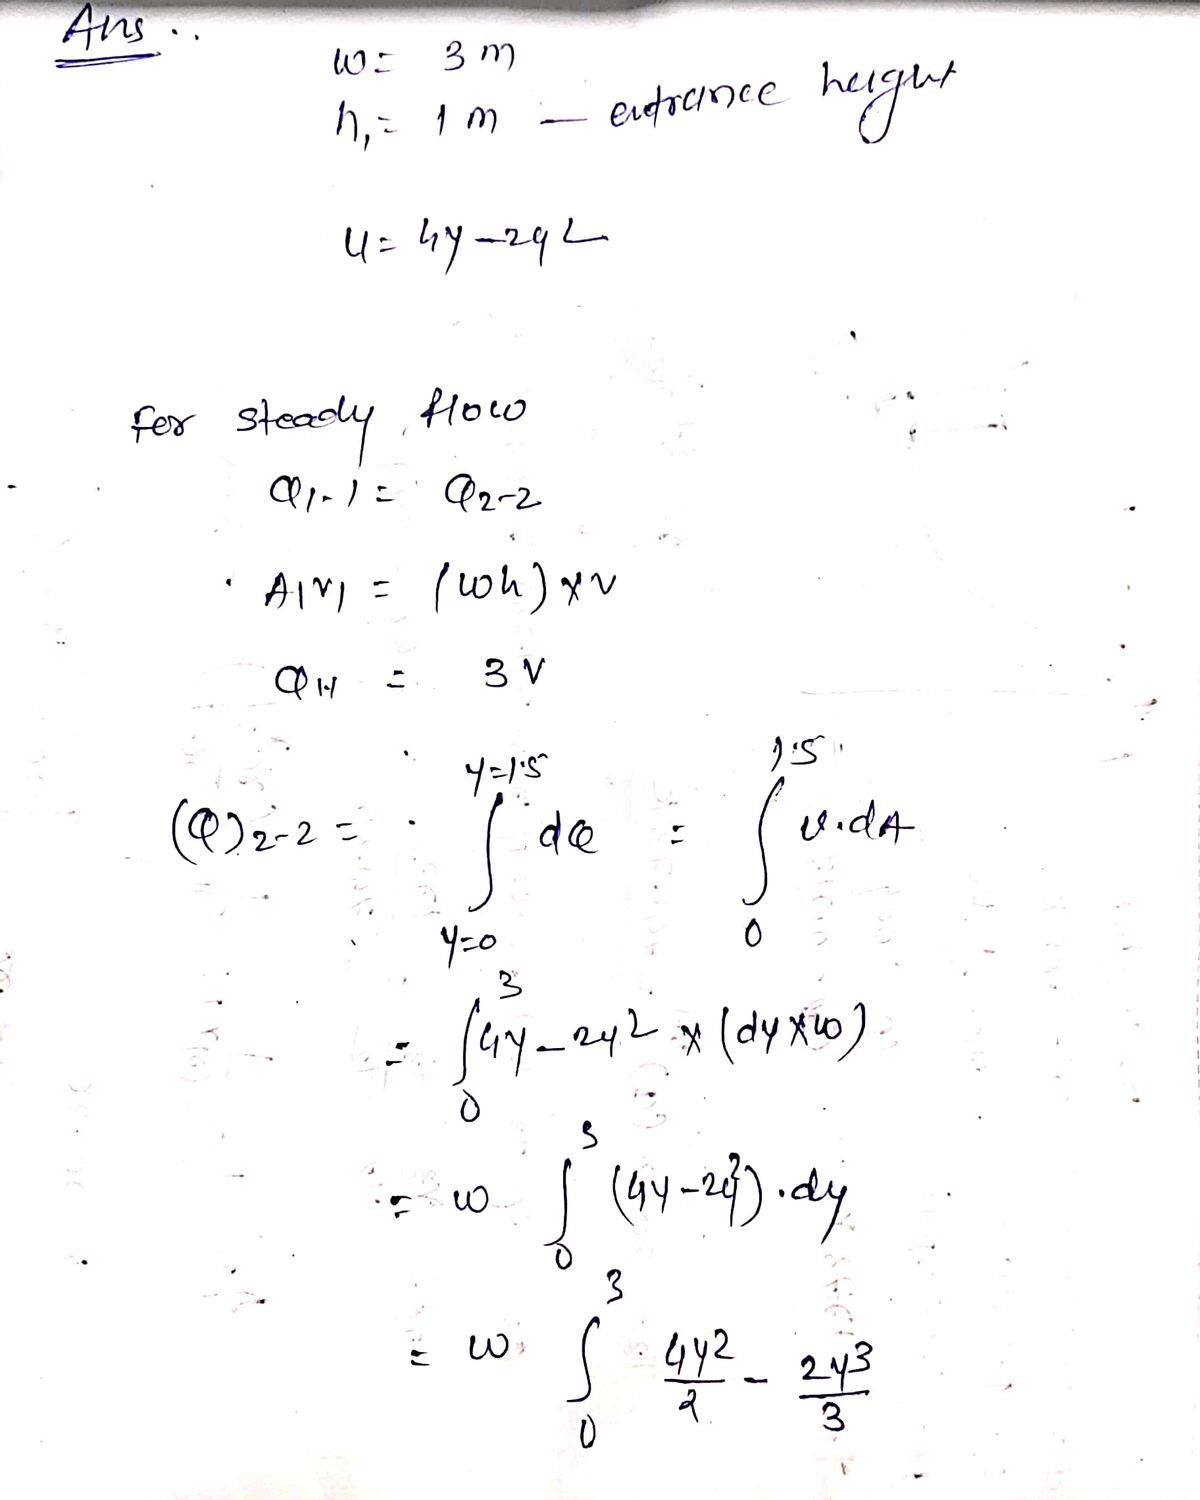 Ans ..
w = 3 m
h₁ = 1 m — entrance height
u = 4y - 2y²
For steady flow
Q1-1 = Q2-2
A1V1 = (wh) × v
Q1-1 = 3 V
(Q)2-2 = ∫ y=0 y=1.5 dQ = ∫ 0 1.5 v.dA
= ∫ 0 3 4y - 2y² × (dy × w)
= w ∫ 0 3 (4y - 2y²) . dy
= w ∫ 0 3 4y²/2 - 2y³/3